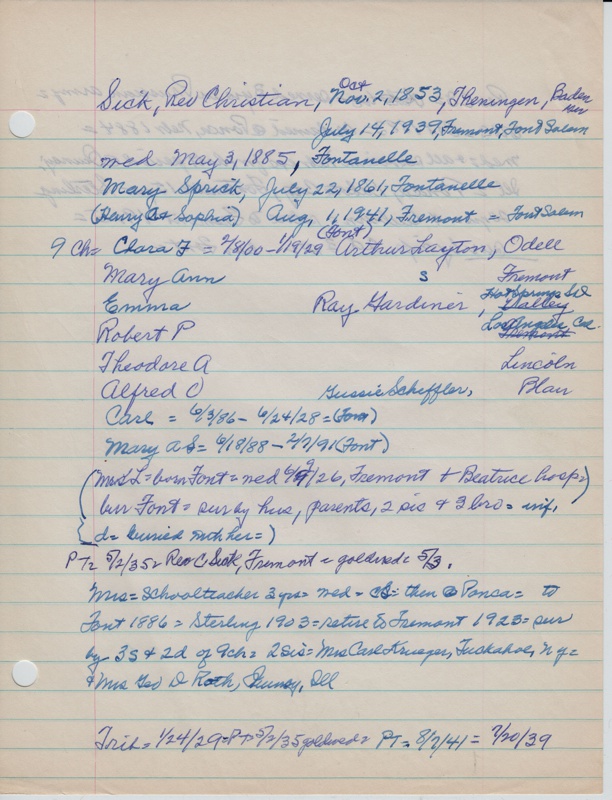 Sick, Rev Christian, Oct Nov. 2, 1853, Theningen, Baden Ger
July 14, 1939, Fremont, Font Salem
med May 3, 1885, Fontanelle
Mary Sprick, July 22, 1861, Fontanelle
(Henry & Sophia) Aug, 1, 1941, Fremont = Font Salem
(Font)
9 Ch = Clara F = 2/8/00 - 1/19/29 Arthur Layton, Odell
Mary Ann S Fremont
Emma Ray Gardiner, Hot Springs SD Valley
Robert P Los Angeles Cal. Fremont
Theodore A Lincoln
Alfred O Gussie Scheffler, Blair
Carl = 6/3/86 - 6/24/28 = (Font)
Mary A S = 6/18/88 - 2/7/91 (Font)
(Mrs L = born Font = med 6/9/26, Fremont & Beatrice hosp =
bur Font = sur by hus, parents, 2 sis & 3 bro = inf,
d = buried mother =)
PTr 5/2/35 = Rev C Sick, Fremont = goldwed = 5/3.
Mrs = Schoolteacher 3 yrs = med = CS = then @ Ponca = to
Font 1886 = Sterling 1903 = retire to Fremont 1923 = sur
by 3 S & 2 d of 9 ch = 2 Sis = Mrs Carl Krueger, Tuckahoe, N Y =
& Mrs Geo D Roth, Quincy, Ill
Trib = 1/24/29 = PT 5/2/35 goldwed = PT = 8/7/41 = 7/20/39